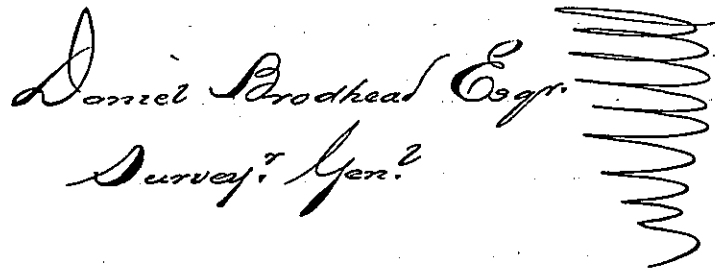 Daniel Brodhead Esqr.
Survey.r Gen.l